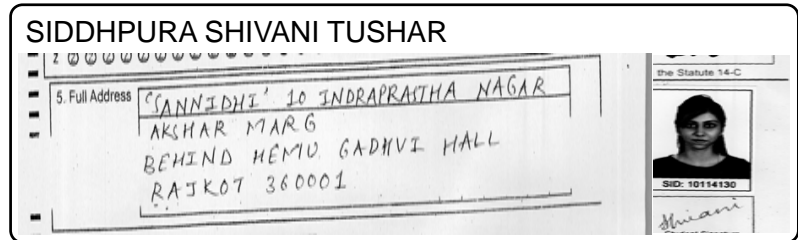 SIDDHPURA SHIVANI TUSHAR
the Statute 14-C
5. Full Address "SANNIDHI' 10 INDRAPRASTHA NAGAR
AKSHAR MARG
BEHIND HEMU GADHVI HALL
RAJKOT 360001
SID: 10114130
Shivani